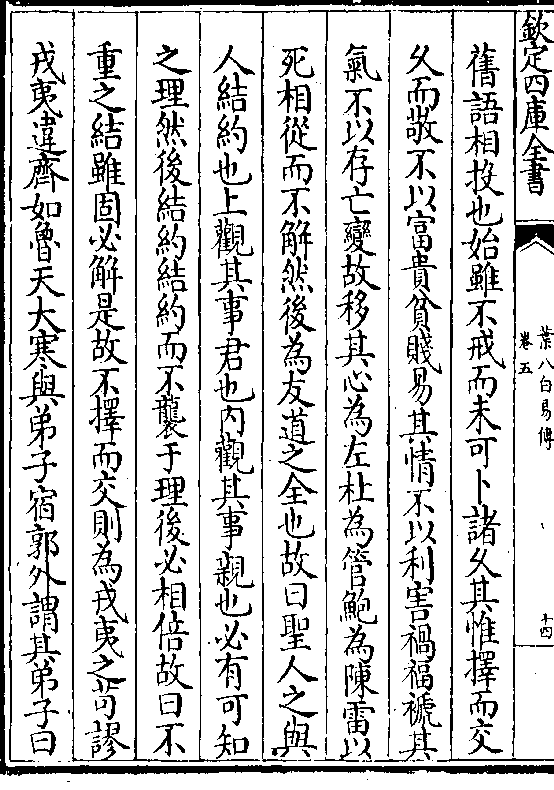 欽定四庫全書
葉八白易傳
卷五
十四
舊語相投也始雖不戒而未可卜諸久其惟擇而交
久而敬不以富貴貧賤易其情不以利害禍福褫其
氣不以存亡變故移其心為左杜為管鮑為陳雷以
死相從而不解然後為友道之全也故曰聖人之與
人結約也上觀其事君也内觀其事親也必有可知
之理然後結約結約而不襲于理後必相倍故曰不
重之結雖固必解是故不擇而交則為戎夷之苛謬
戎夷違齊如魯天大寒與弟子宿郭外謂其弟子曰